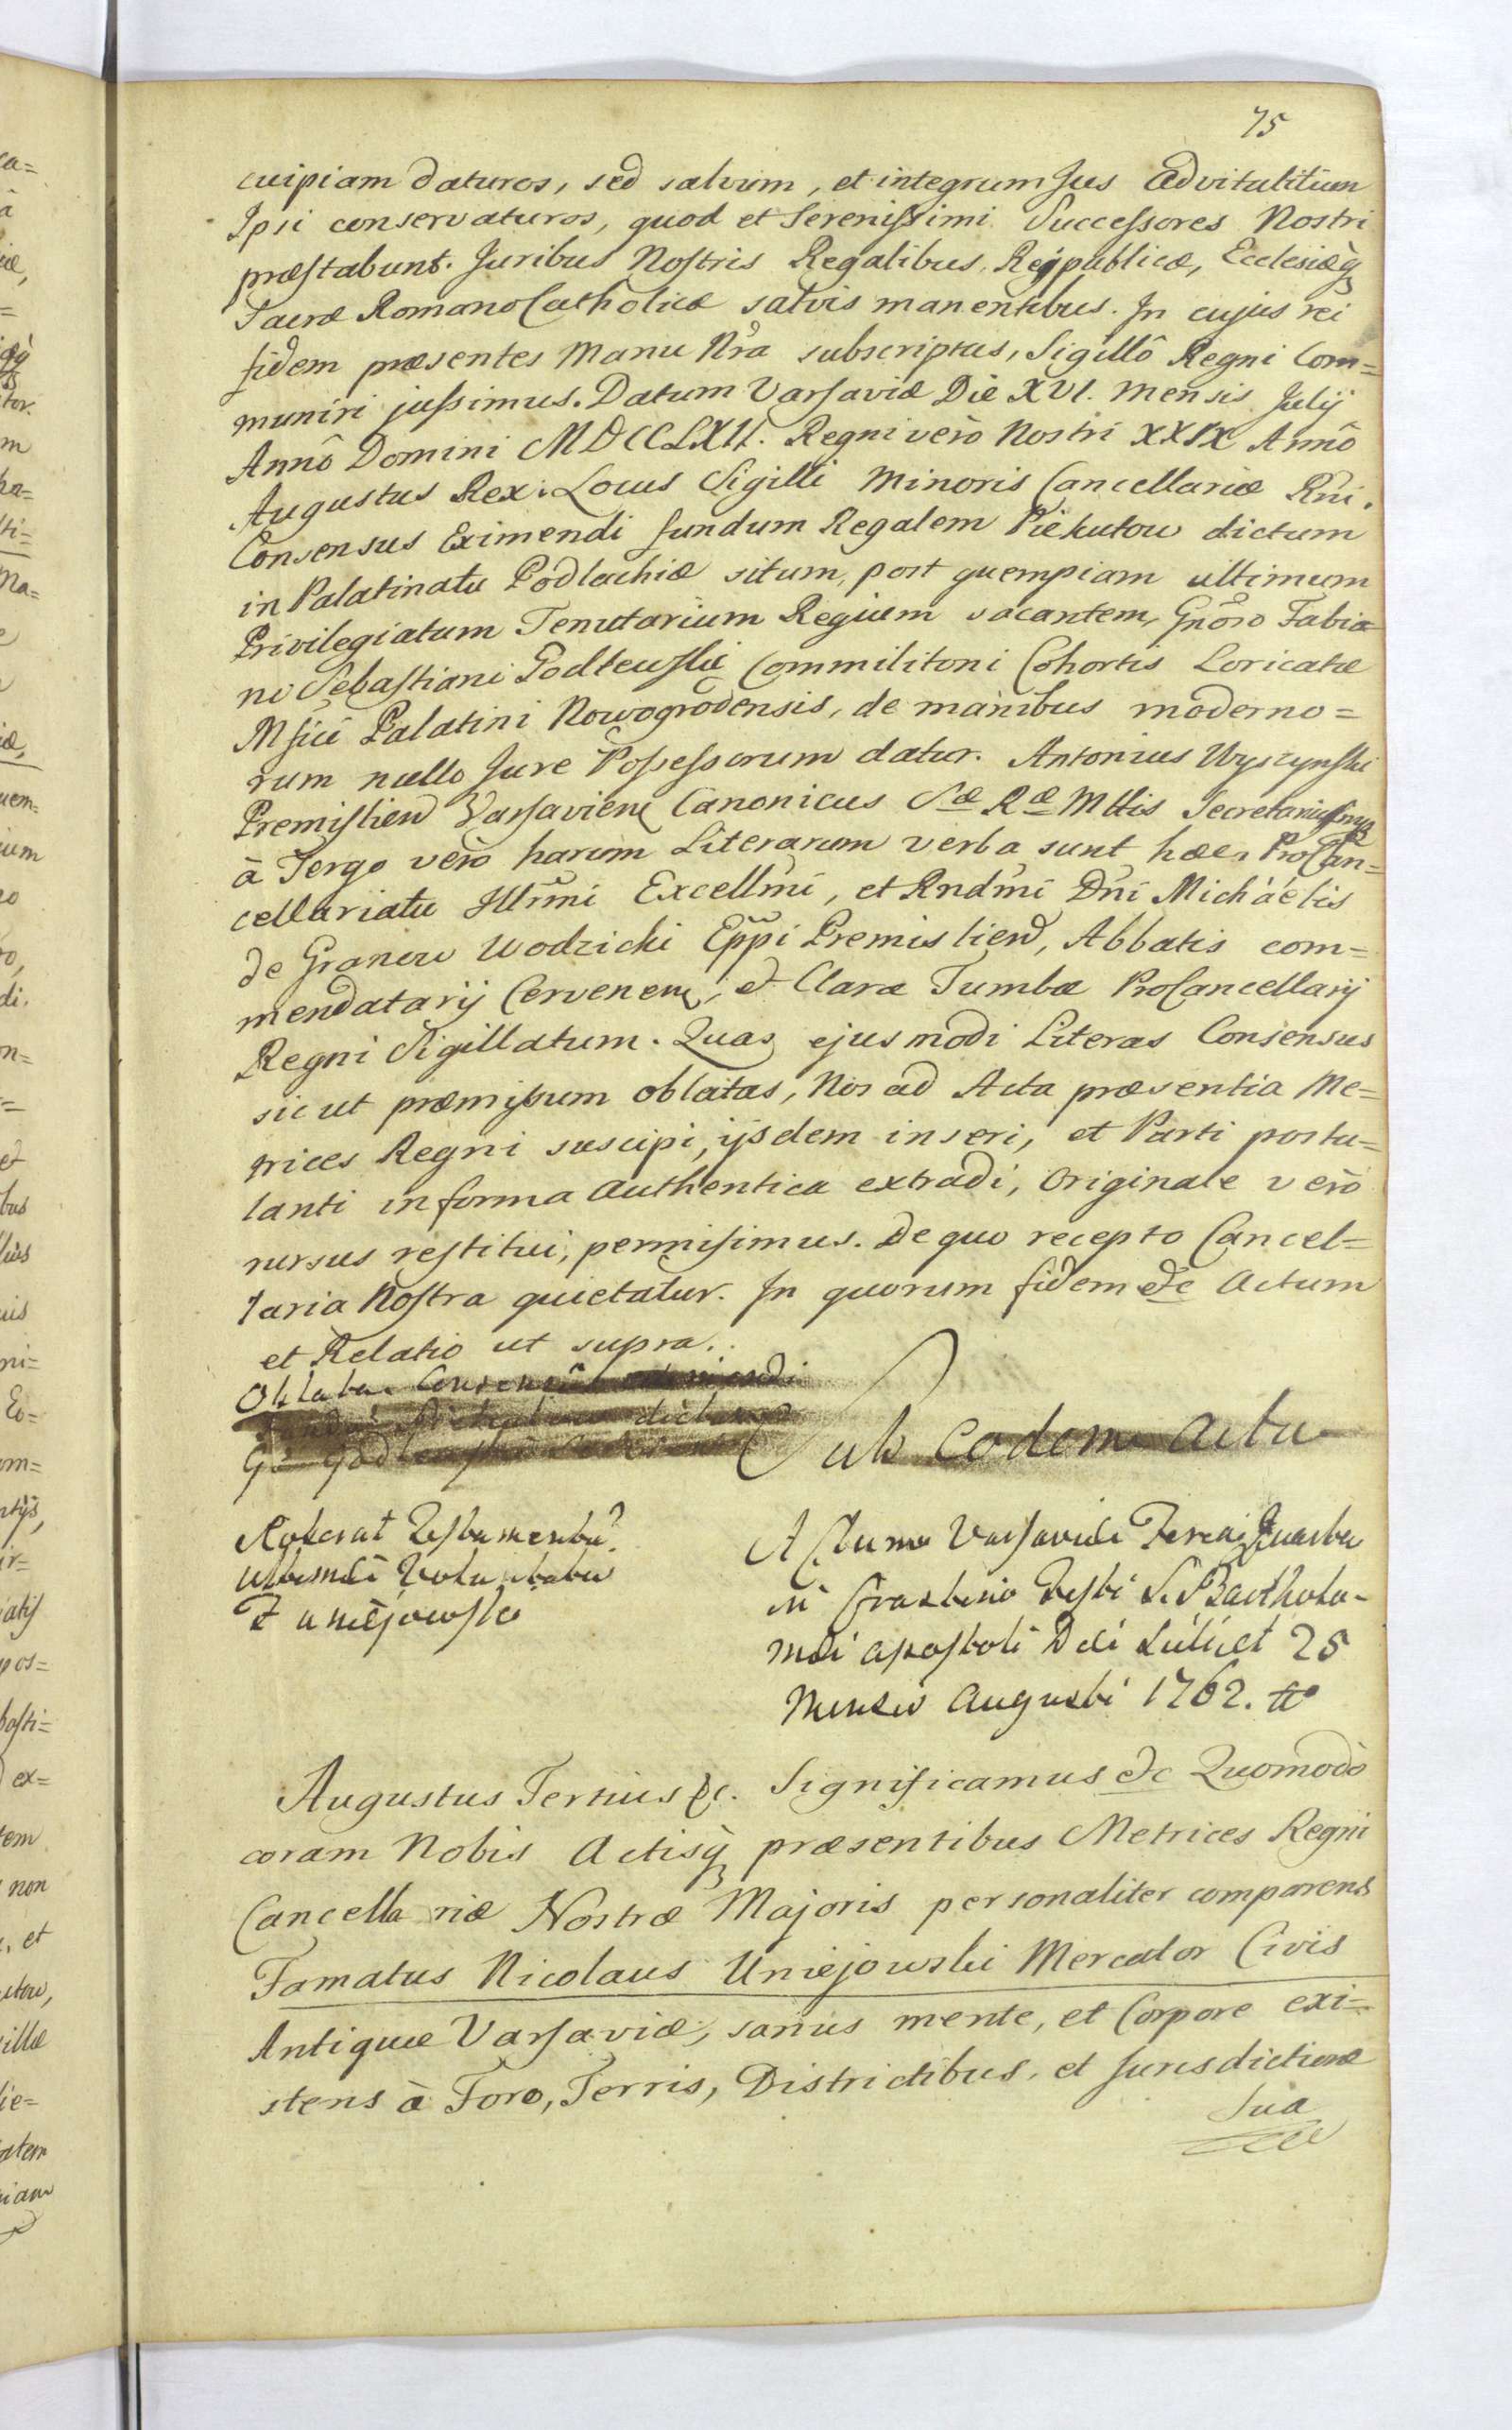 75
cuipiam daturos, sed salvum, et integrum Jus Advitalitium
Ipsi conservaturos, quod et Serenissimi Successores Nostri
præstabunt. Juribus Nostris Regalibus, Reipublicæ, Ecclesiæq
Sacræ Romano Catholicæ salvis manentibus. In cujus rei
fidem præsentes Manu Nrã subscriptas, Sigillô Regni Com=
muniri jussimus. Datum Varsaviæ Die XVI. Mensis Julij
Annô Domini MDCCLXII. Regni verò Nostri XXIX Annô
Augustus Rex. Locus Sigilli Minoris Cancellariæ Rni.
Consensus Eximendi fundum Regalem Piekutow dictum
in Palatinatu Podlachiæ situm, post quempiam ultimum
Privilegiatum Tenutarium Regium vacantem, Gnõso Fabia=
ni Sebastiani Godlewski Commilitoni Cohortis Loricatæ
Mfici Palatini Nowogrodensis, de manibus moderno=
rum nullo Jure Possessorum datur. Antonius Wyszynski
Premislien Varsavien Canonicus Sæ Ræ Mttis Secretarius
à Tergo verò harum Literarum verba sunt hæc, ProCan=
cellariatu Illmi Excellmi, et Rndmi Dni Michaelis
de Granow Wodzicki Eppi Premislien, Abbatis com=
mendatarij Cervenen, et Claræ Tumbæ ProCancellarij
Regni Sigillatum. Quas ejusmodi Literas Consensus
sicut præmissum oblatas, Nos ad Acta præsentia Me=
trices Regni suscipi, ijsdem inseri, et Parti postu=
lanti in forma Authentica extradi, Originale verò
rursus restitui, permisimus. De quo recepto Cancel=
laria Nostra quietatur. In quorum fidem &c Actum
et Relatio ut supra.
Oblata Consensûs eximendi
Sub eodem actu
Roborat Testamentũ
ultimæ Voluntatis
Uniejowski
Actum Varsaviæ Feria Quarta
in Crastino Festi S. Bartholo-
mæi Apostoli Die scilicet 25
Mensis Augusti 1762. Ao
Augustus Tertius &c. Significamus &c Quomodò
coram Nobis Actisq præsentibus Metrices Regni
Cancellariæ Nostræ Majoris personaliter comparens
Famatus Nicolaus Uniejowski Mercator Civis
Antiquæ Varsaviæ, sanus mente, et Corpore exi=
stens à Foro, Terris, Districtibus, et Jurisdictione
Sua